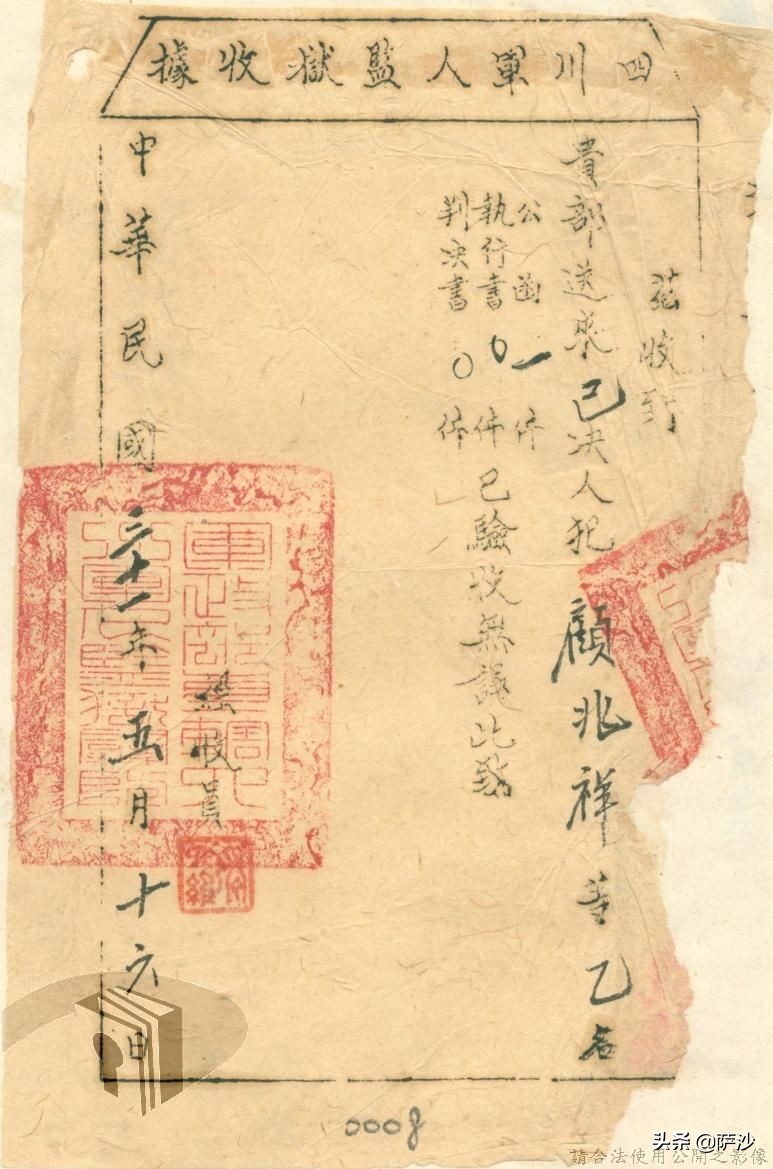 四川軍人監獄收據
茲收到
貴部送來已決人犯顧兆祥等乙名
公函一件
執行書0件
判決書0件
已驗收無誤此致
經收員
中華民國三十一年五月十六日
0008
头条 @萨沙
請合法使用公開之影像